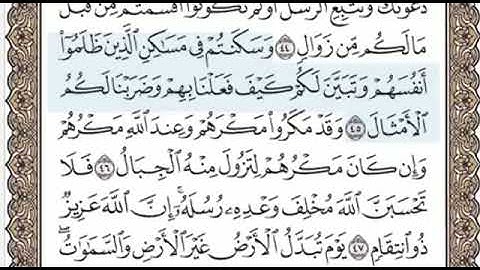 دَعۡوَتَكَ وَنَتَّبِعِ ٱلرُّسُلَۗ أَوَلَمۡ تَكُونُوٓاْ أَقۡسَمۡتُم مِّن قَبۡلُ
مَا لَكُم مِّن زَوَالٖ ٤٤ وَسَكَنتُمۡ فِي مَسَٰكِنِ ٱلَّذِينَ ظَلَمُوٓاْ
أَنفُسَهُمۡ وَتَبَيَّنَ لَكُمۡ كَيۡفَ فَعَلۡنَا بِهِمۡ وَضَرَبۡنَا لَكُمُ
ٱلۡأَمۡثَالَ ٤٥ وَقَدۡ مَكَرُواْ مَكۡرَهُمۡ وَعِندَ ٱللَّهِ مَكۡرُهُمۡ
وَإِن كَانَ مَكۡرُهُمۡ لِتَزُولَ مِنۡهُ ٱلۡجِبَالُ ٤٦ فَلَا
تَحۡسَبَنَّ ٱللَّهَ مُخۡلِفَ وَعۡدِهِۦ رُسُلَهُۥٓۚ إِنَّ ٱللَّهَ عَزِيزٞ
ذُو ٱنتِقَامٖ ٤٧ يَوۡمَ تُبَدَّلُ ٱلۡأَرۡضُ غَيۡرَ ٱلۡأَرۡضِ وَٱلسَّمَٰوَٰتُۖ